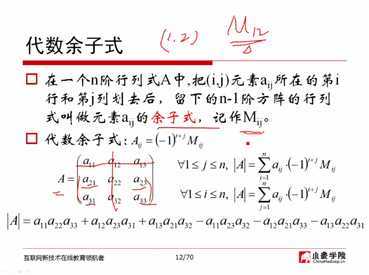 代数余子式
(1.2) M12
在一个n阶行列式A中,把(i,j)元素aij所在的第i
行和第j列划去后,留下的n-1阶方阵的行列
式叫做元素aij的余子式,记作Mij
代数余子式:Aij=(-1)^{i+j}Mij
A= ( a11 a12 a13
a21 a22 a23
a31 a32 a33 )
∀1≤j≤n, |A|=∑_{i=1}^{n} aij·(-1)^{i+j}Mij
∀1≤i≤n, |A|=∑_{j=1}^{n} aij·(-1)^{i+j}Mij
|A|=a11a22a33+a12a23a31+a13a21a32-a11a23a32-a12a21a33-a13a22a31
互联网新技术在线教育领航者
12/70
小象学院
ChinaHadoop.cn